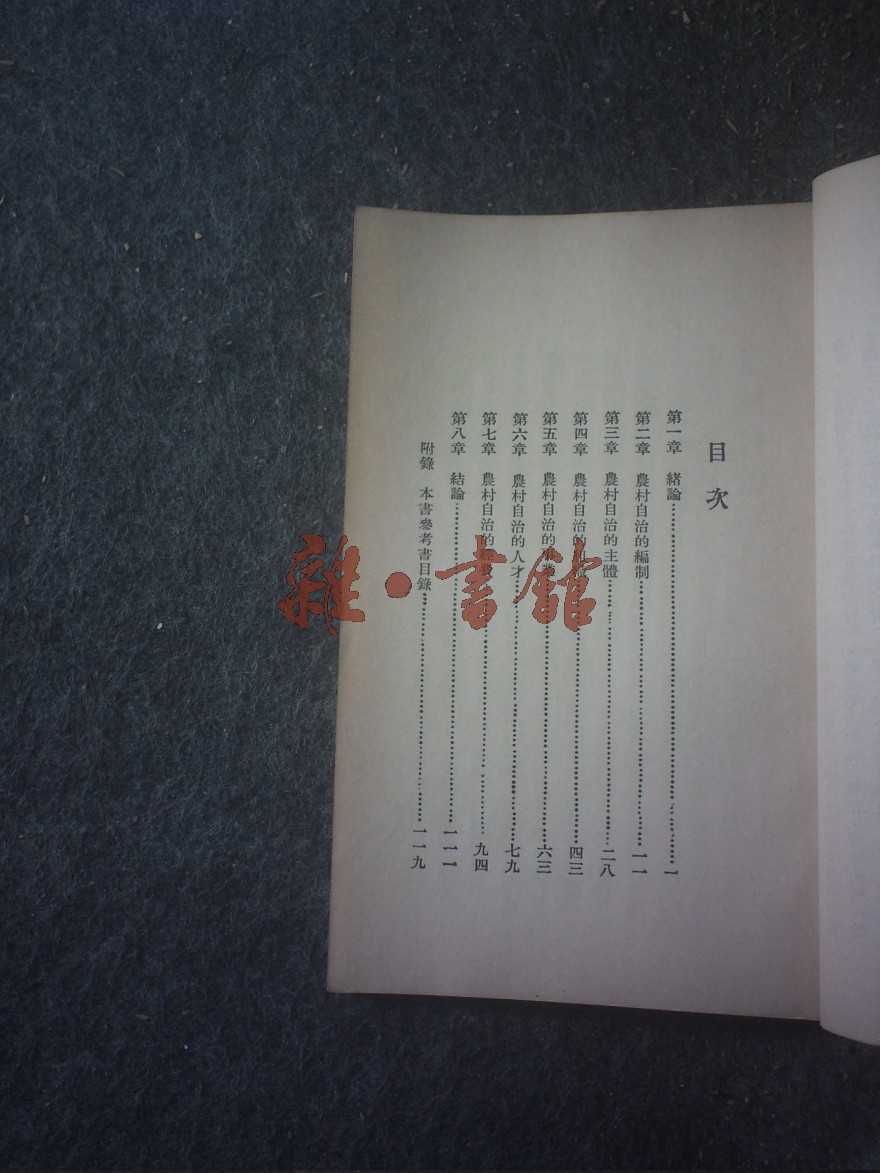 目次
第一章 緒論……一
第二章 農村自治的編制……一一
第三章 農村自治的主體……二八
第四章 農村自治的……四三
第五章 農村自治的……六三
第六章 農村自治的人才……七九
第七章 農村自治的……九四
第八章 結論……一一一
附錄 本書參考書目錄……一一九
雜·書館